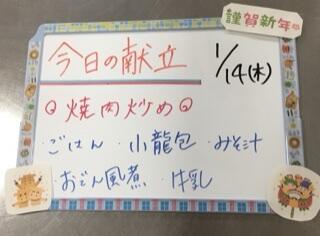 謹賀新年
今日の献立
1/14(木)
焼肉炒め
・ごはん ・小龍包 ・みそ汁
・おでん風煮 ・牛乳